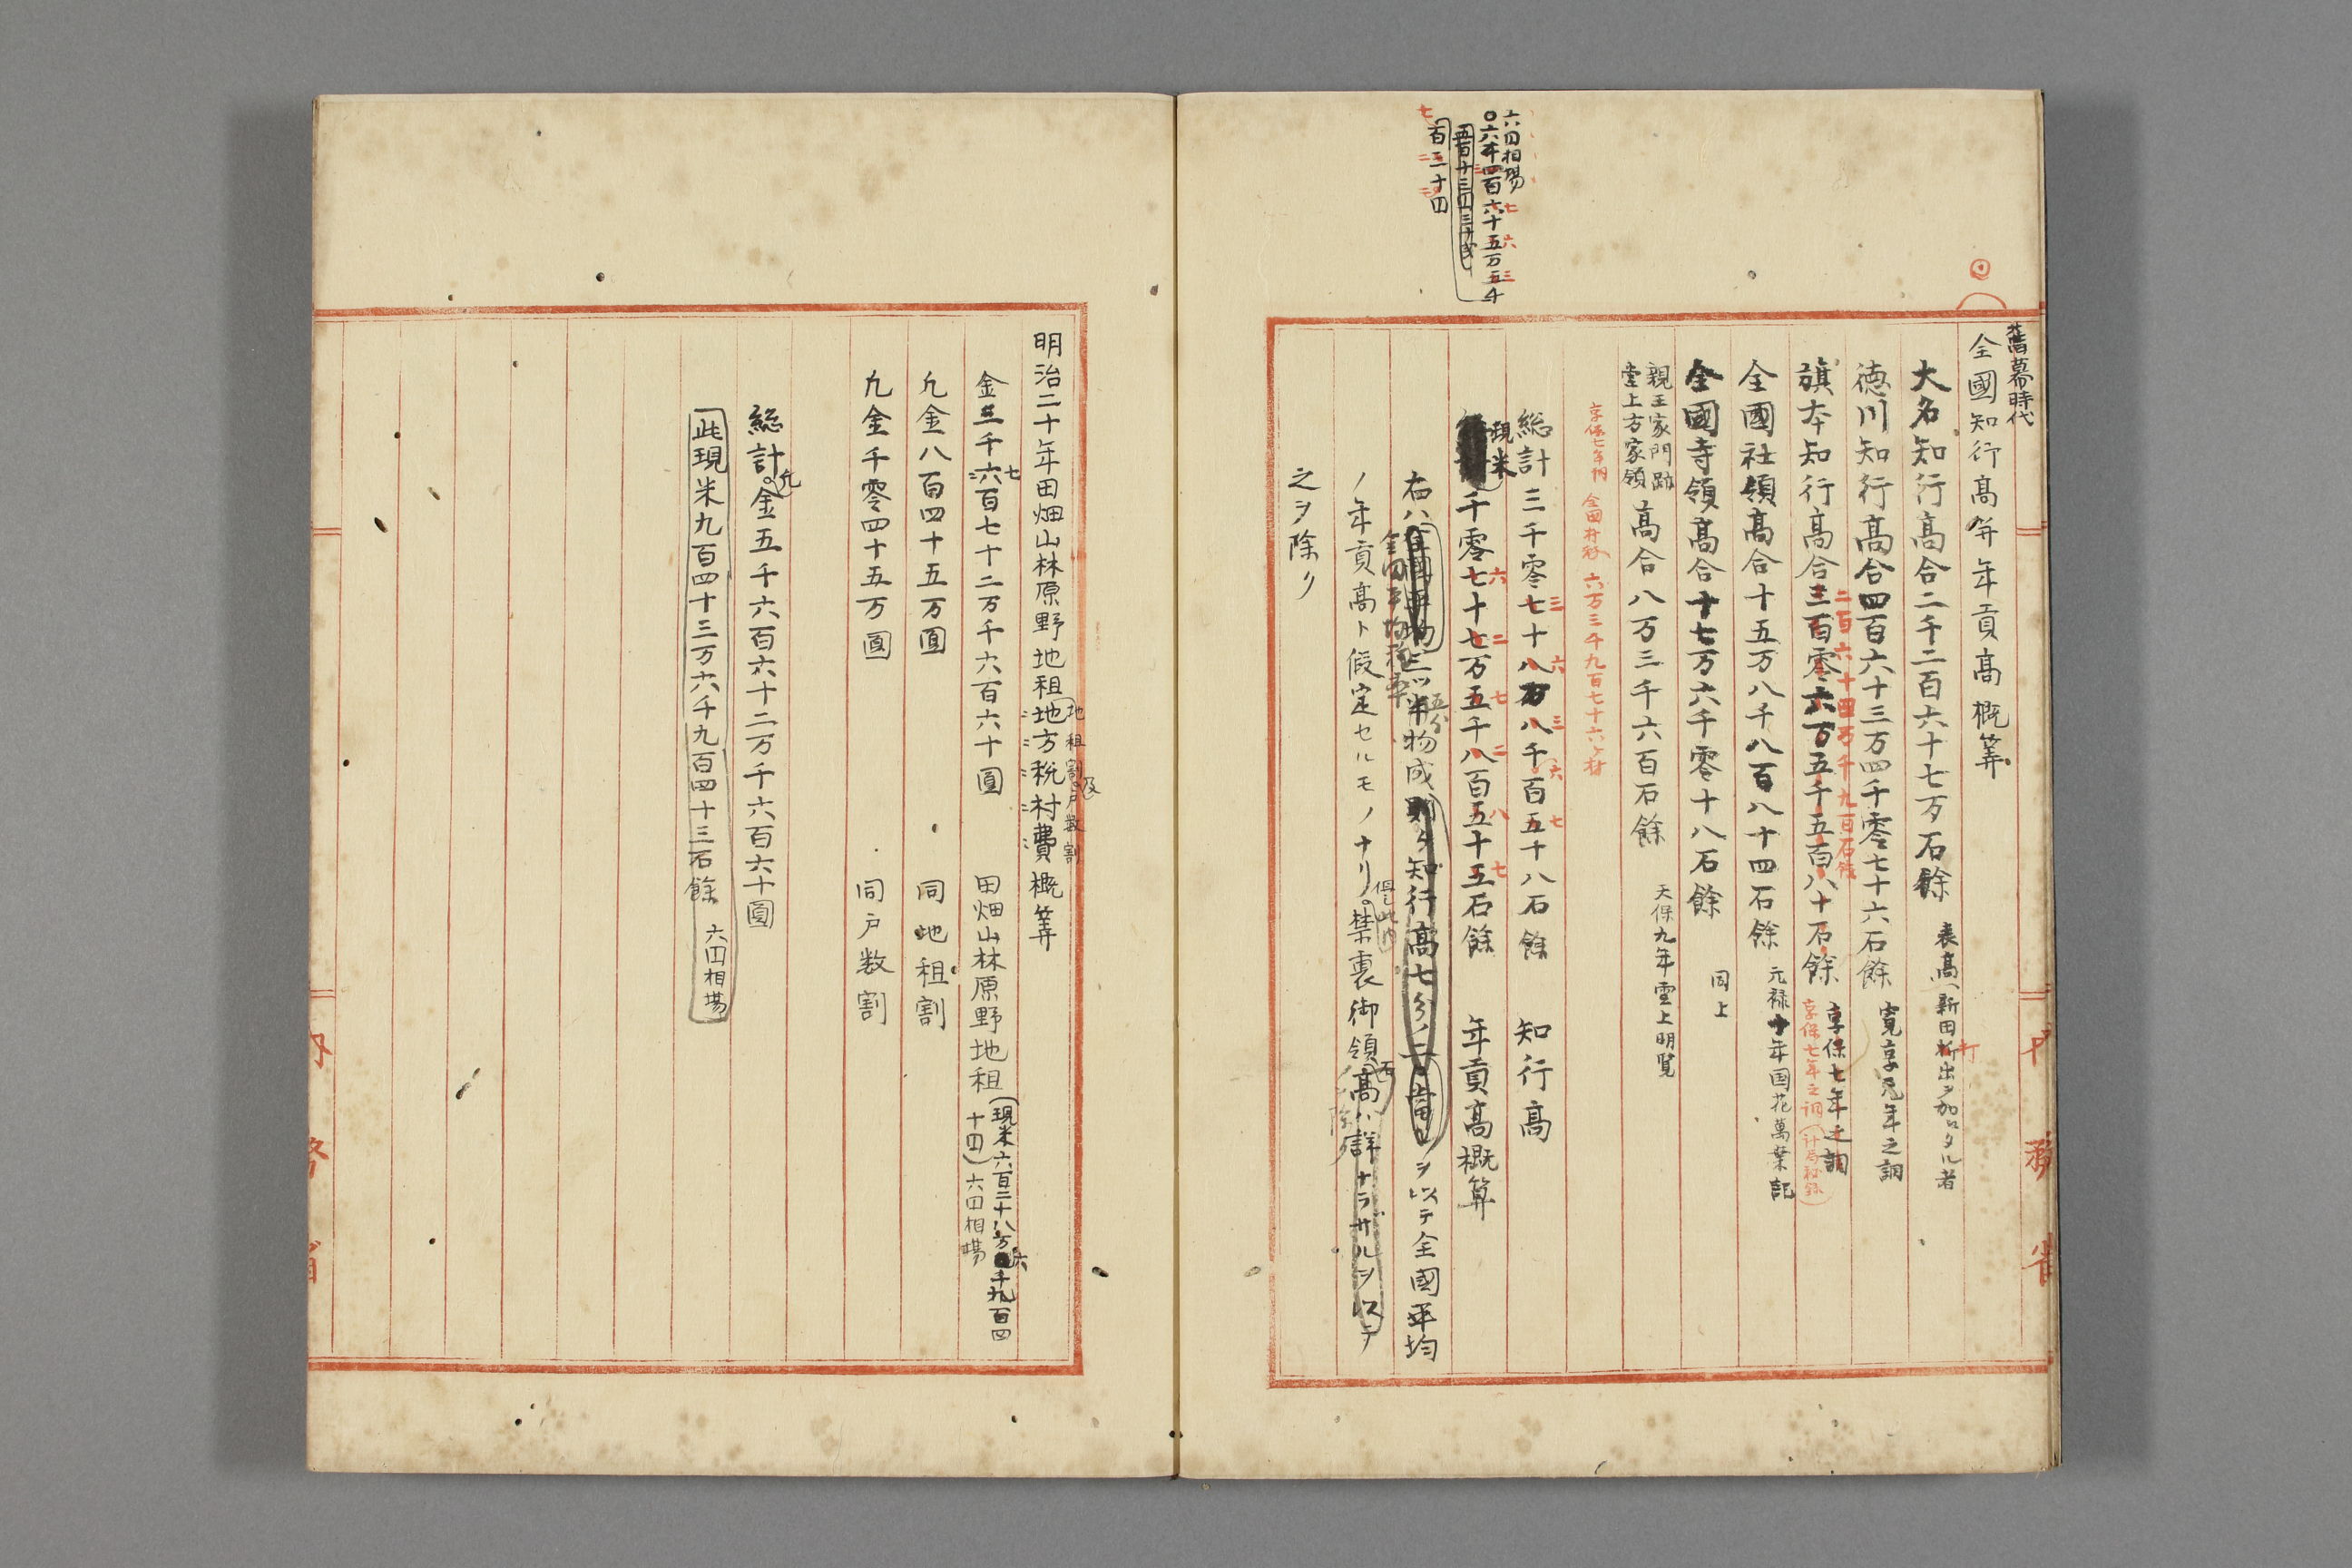 舊幕時代
全國知行高并年貢高概筭
大名知行高合二千二百六十七万石餘 表高へ新田打出ヲ加ヘタル者
徳川知行高合四百六十三万四千零七十六石餘 寛享元年之調
旗本知行高合三百零六万五千五百八十石餘 享保七年之調
二百六十四万千九百石餘
享保七年之調
全國社領高合十五万八千八百八十四石餘 元禄十年国花萬葉記
全國寺領高合十七万六千零十八石餘 同上
親王家門跡
堂上方家領
高合八万三千六百石餘 天保九年雲上明覧
享保七年調 全国村數 六万三千九百七十六ヶ村
総計三千零七十八万八千百五十八石餘 知行高
三六三六七
現米
千零七十七万五千八百五十五石餘 年貢高概算
六二七二八七
右ハ
全国平均
物成
知行高七分ノ二ヲ以テ全國平均
ノ年貢高ト假定セルモノナリ禁裏御領高ハ詳ナラザルヲ以テ
但此内
之ヲ除リ
六円相場
六千四百六十五万五千
百二十四
明治二十年田畑山林原野地租地方税村費概筭
地租割及戸数割
金三千六百七十二万千六百六十圓 田畑山林原野地租
(現米六百二十八万六千九百四
十四)六円相場
凢金八百四十五万圓 同地租割
凢金千零四十五万圓 同戸数割
総計凢金五千六百六十二万千六百六十圓
此現米九百四十三万六千九百四十三石餘 六円相場
内務省
内務省